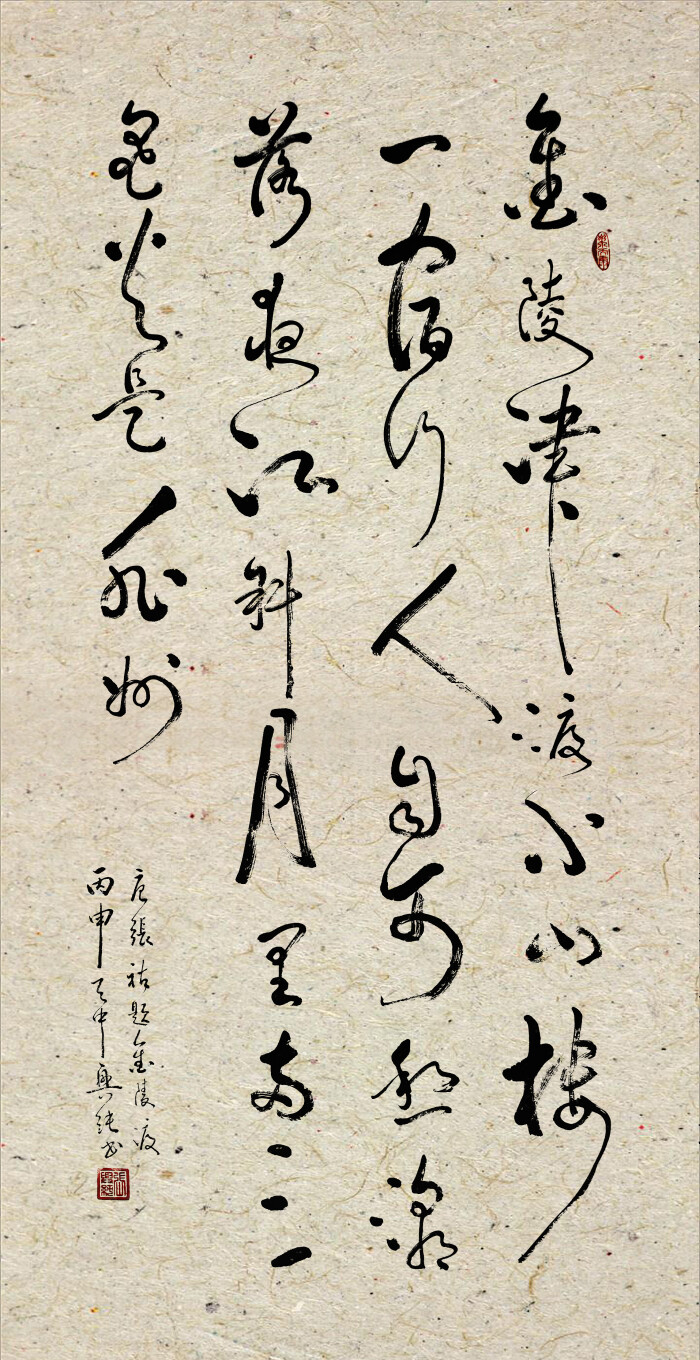 金陵津渡小山樓
一宿行人自可愁潮
落夜江斜月里两三
星火是瓜州
唐張祜題金陵渡
丙申天中興純书